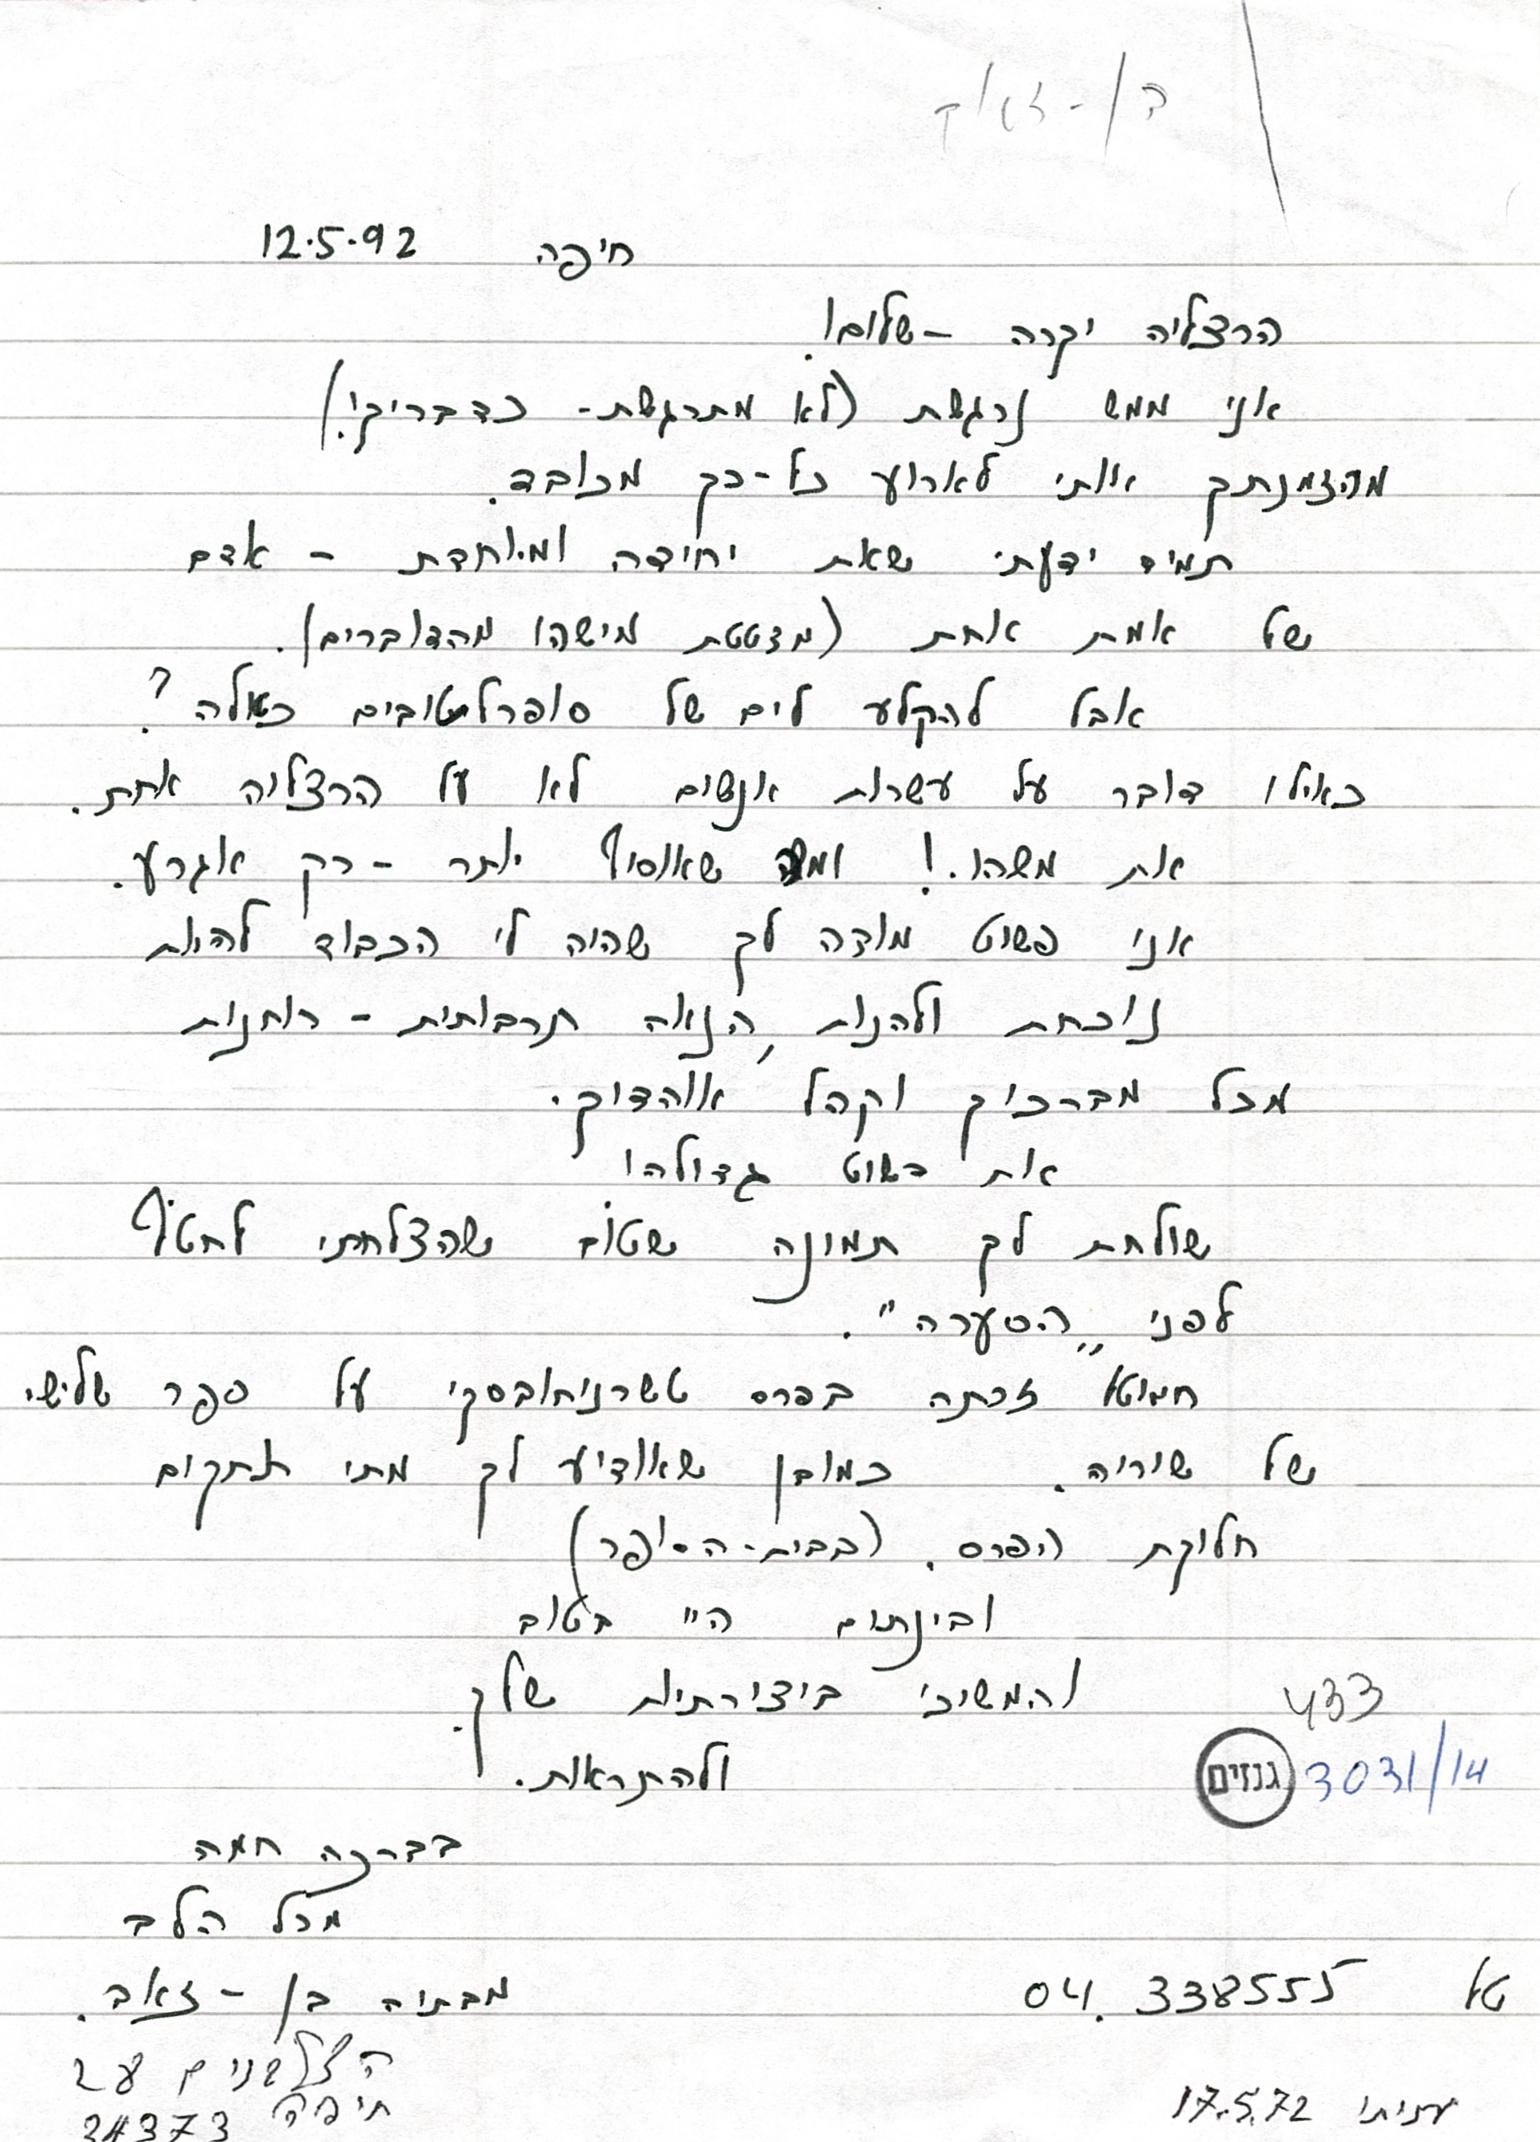 בן-זאב
חיפה 12.5.92
הרצליה יקרה - שלום!
אני ממש נרגשת (לא מתרגשת - כדבריך!)
מהזמנתך אותי לארוע כל-כך מכובד.
תמיד ידעתי שאת יחידה ומיוחדת - אדם
של אמת אחת (מצטטת מישהו מהדוברים).
אבל להקלע לים של סופרלטובים כאלה?
כאילו דובר על עשרות אנשים לא על הרצליה אחת.
את משהו! ומה שאוסיף יותר - רק אגרע.
אני פשוט מודה לך שהיה לי הכבוד להיות
נוכחת ולהנות, הנאה תרבותית - רוחנית
מכל מברכיך וקהל אוהדיך.
את פשוט גדולה!
שולחת לך תמונה שטוב שהצלחתי לחטוף
לפני "הסערה".
זכתה בפרס טשרניחובסקי על ספר שלישי
של שיריה. כמובן שאודיע לך מתי תתקיים
חלוקת הפרס. (בבית-הסופר)
ובינתיים היי בטוב
והמשיכי ביצירתיות שלך.
ולהתראות.
433
גנזים 3031/14
בברכה חמה
מכל הלב
מבתיה בן-זאב.
טל 04.338555
ה 42
חיפה 34373
עניתי 17.5.72